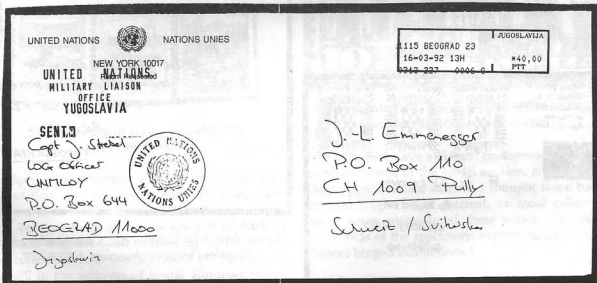 UNITED NATIONS NATIONS UNIES
NEW YORK 10017
UNITED NATIONS
MILITARY LIAISON
OFFICE
YUGOSLAVIA
SENT:
Capt J. Strebel
LOG Officer
UNMLOY
P.O. Box 644
BEOGRAD 11000
Jugoslawien
UNITED NATIONS
NATIONS UNIES
JUGOSLAVIJA
1115 BEOGRAD 23
16-03-92 13H *40,00
PTT
J.-L. Emmenegger
P.O. Box 110
CH 1009 Pully
Schweiz / Svitserska